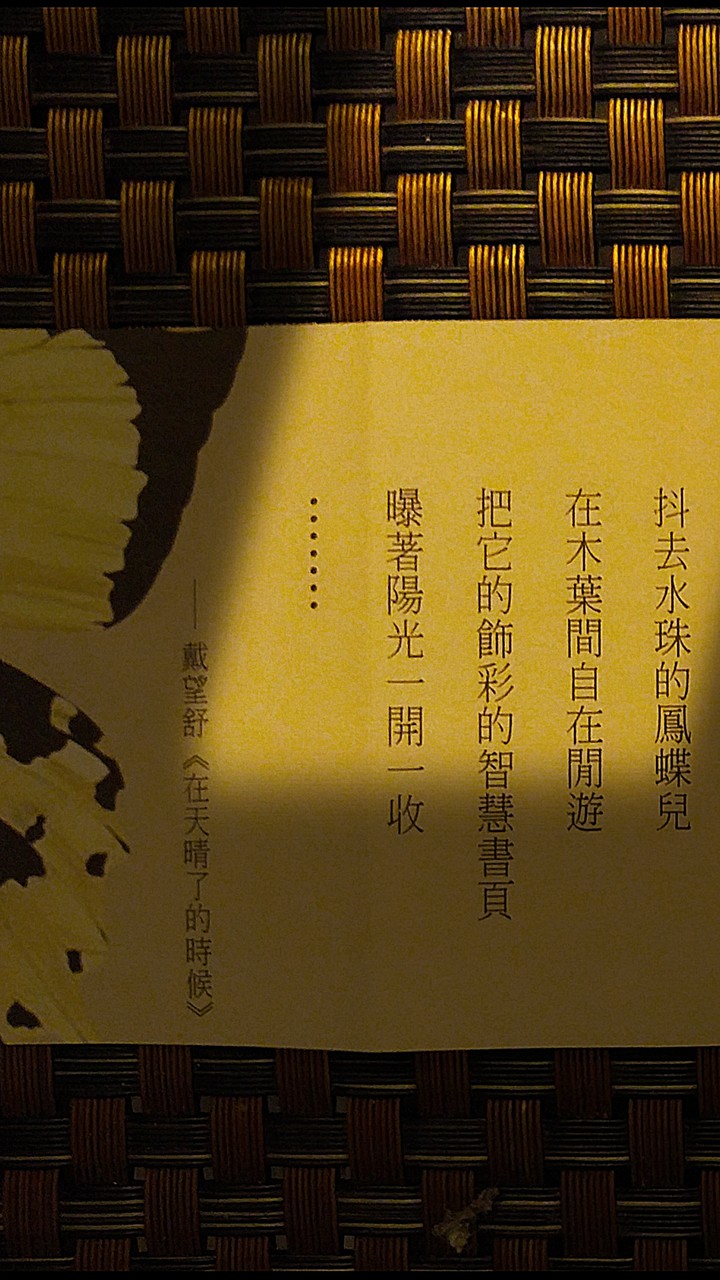 抖去水珠的鳳蝶兒
在木葉間自在閒遊
把它的飾彩的智慧書頁
曝著陽光一開一收
⋯⋯
——戴望舒《在天晴了的時候》